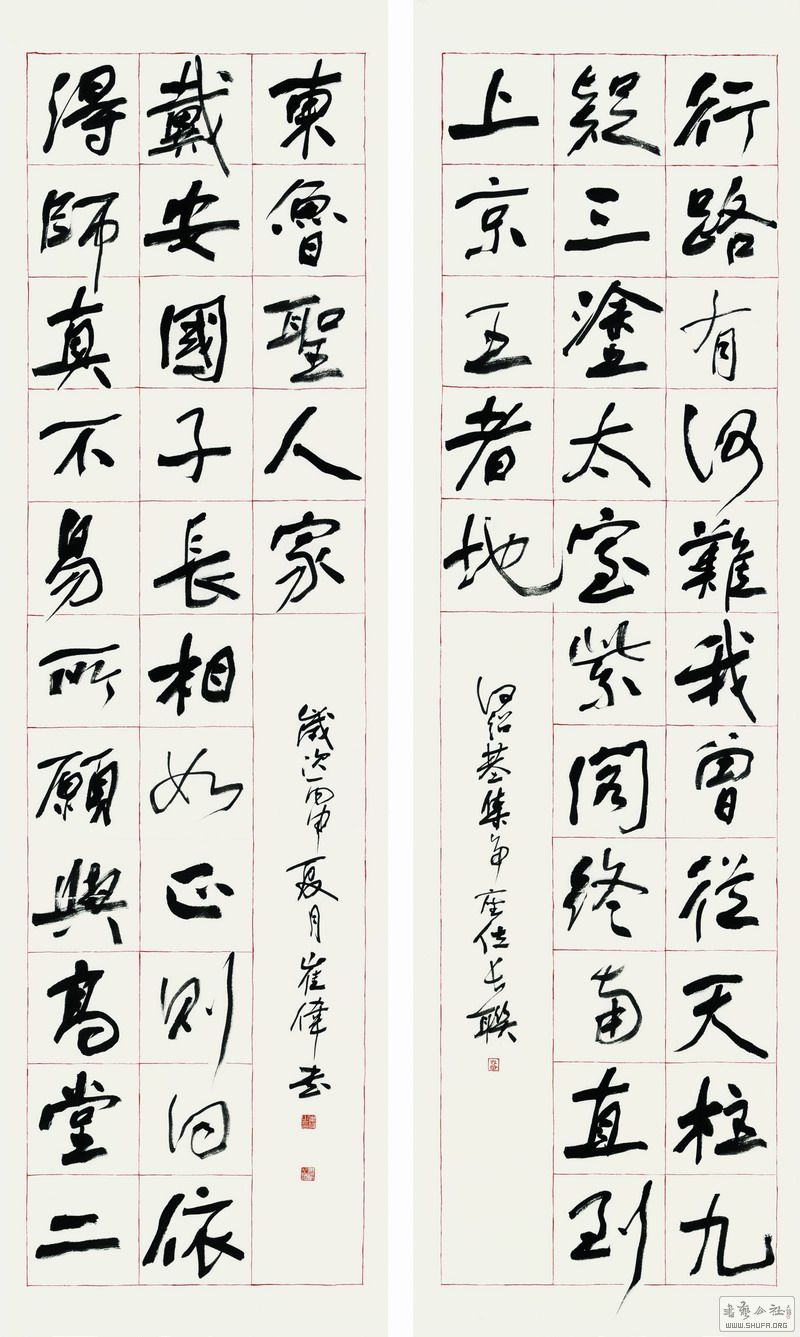 行路有何難我曾從天柱九
疑三塗太室紫閣終南直到
上京王者地
何紹基集爭座位長聯
得師真不易所願與高堂二
戴安國子長相如正則同依
東魯聖人家
歲次丙申夏月崔偉書
書藝公社
WWW.SHUFA.ORG